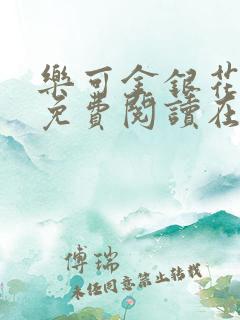 樂可金銀花
免費閱讀在
傅瑞
未经同意禁止转载